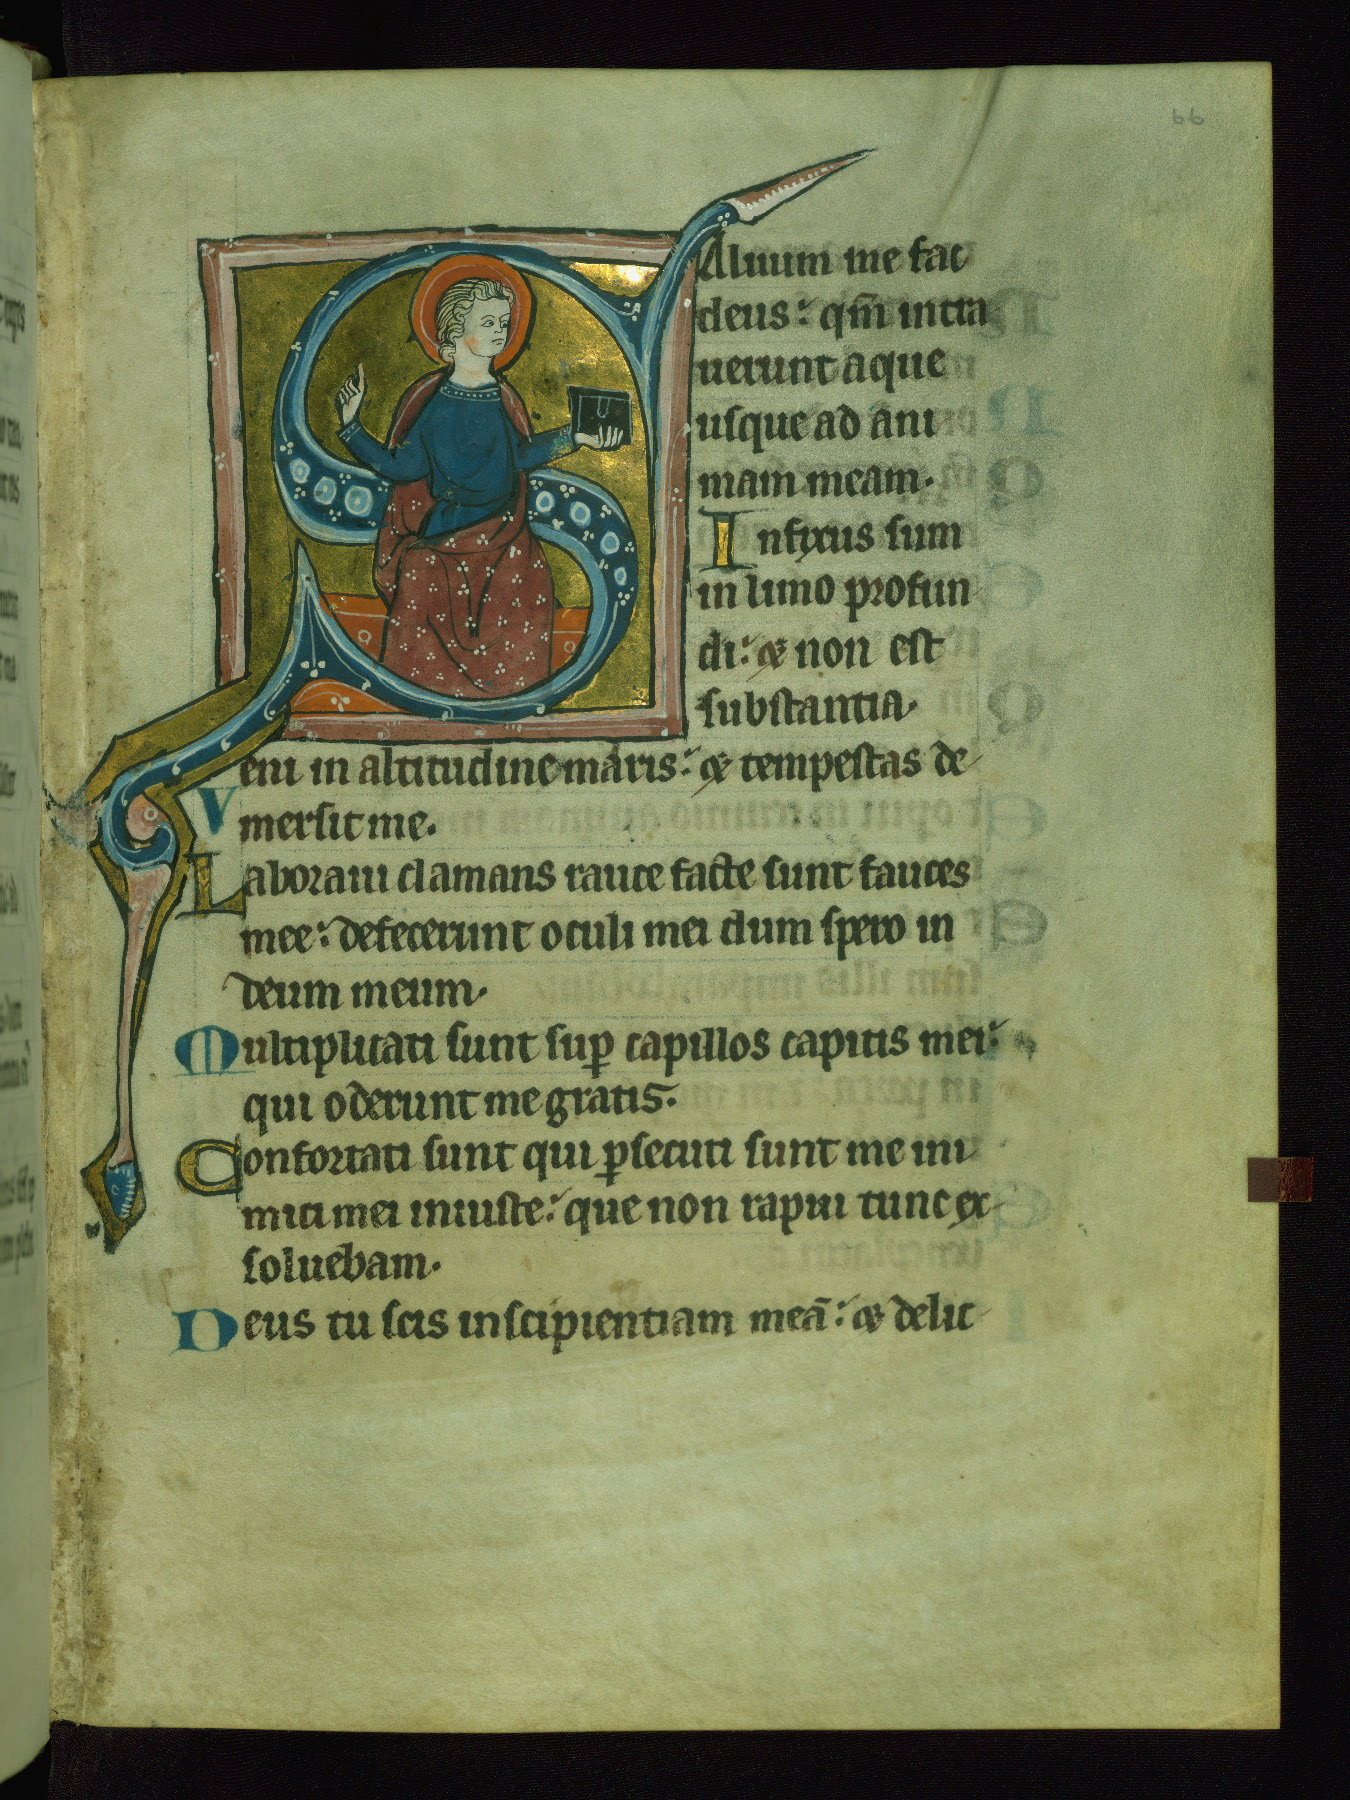 66
SAluum me fac
deus: qm̄ intra
uerunt aque
usque ad ani
mam meam.
Infixus sum
in limo profun
di: & non est
substantia.
Veni in altitudine maris: & tempestas de
mersit me.
Laboraui clamans rauce facte sunt fauces
mee: defecerunt oculi mei dum spero in
deum meum.
Multiplicati sunt suꝑ capillos capitis mei:
qui oderunt me gratis.
Confortati sunt qui ꝑsecuti sunt me ini
mici mei iniuste: que non rapui tunc ex
soluebam.
Deus tu scis inscipientiam meā: & delic